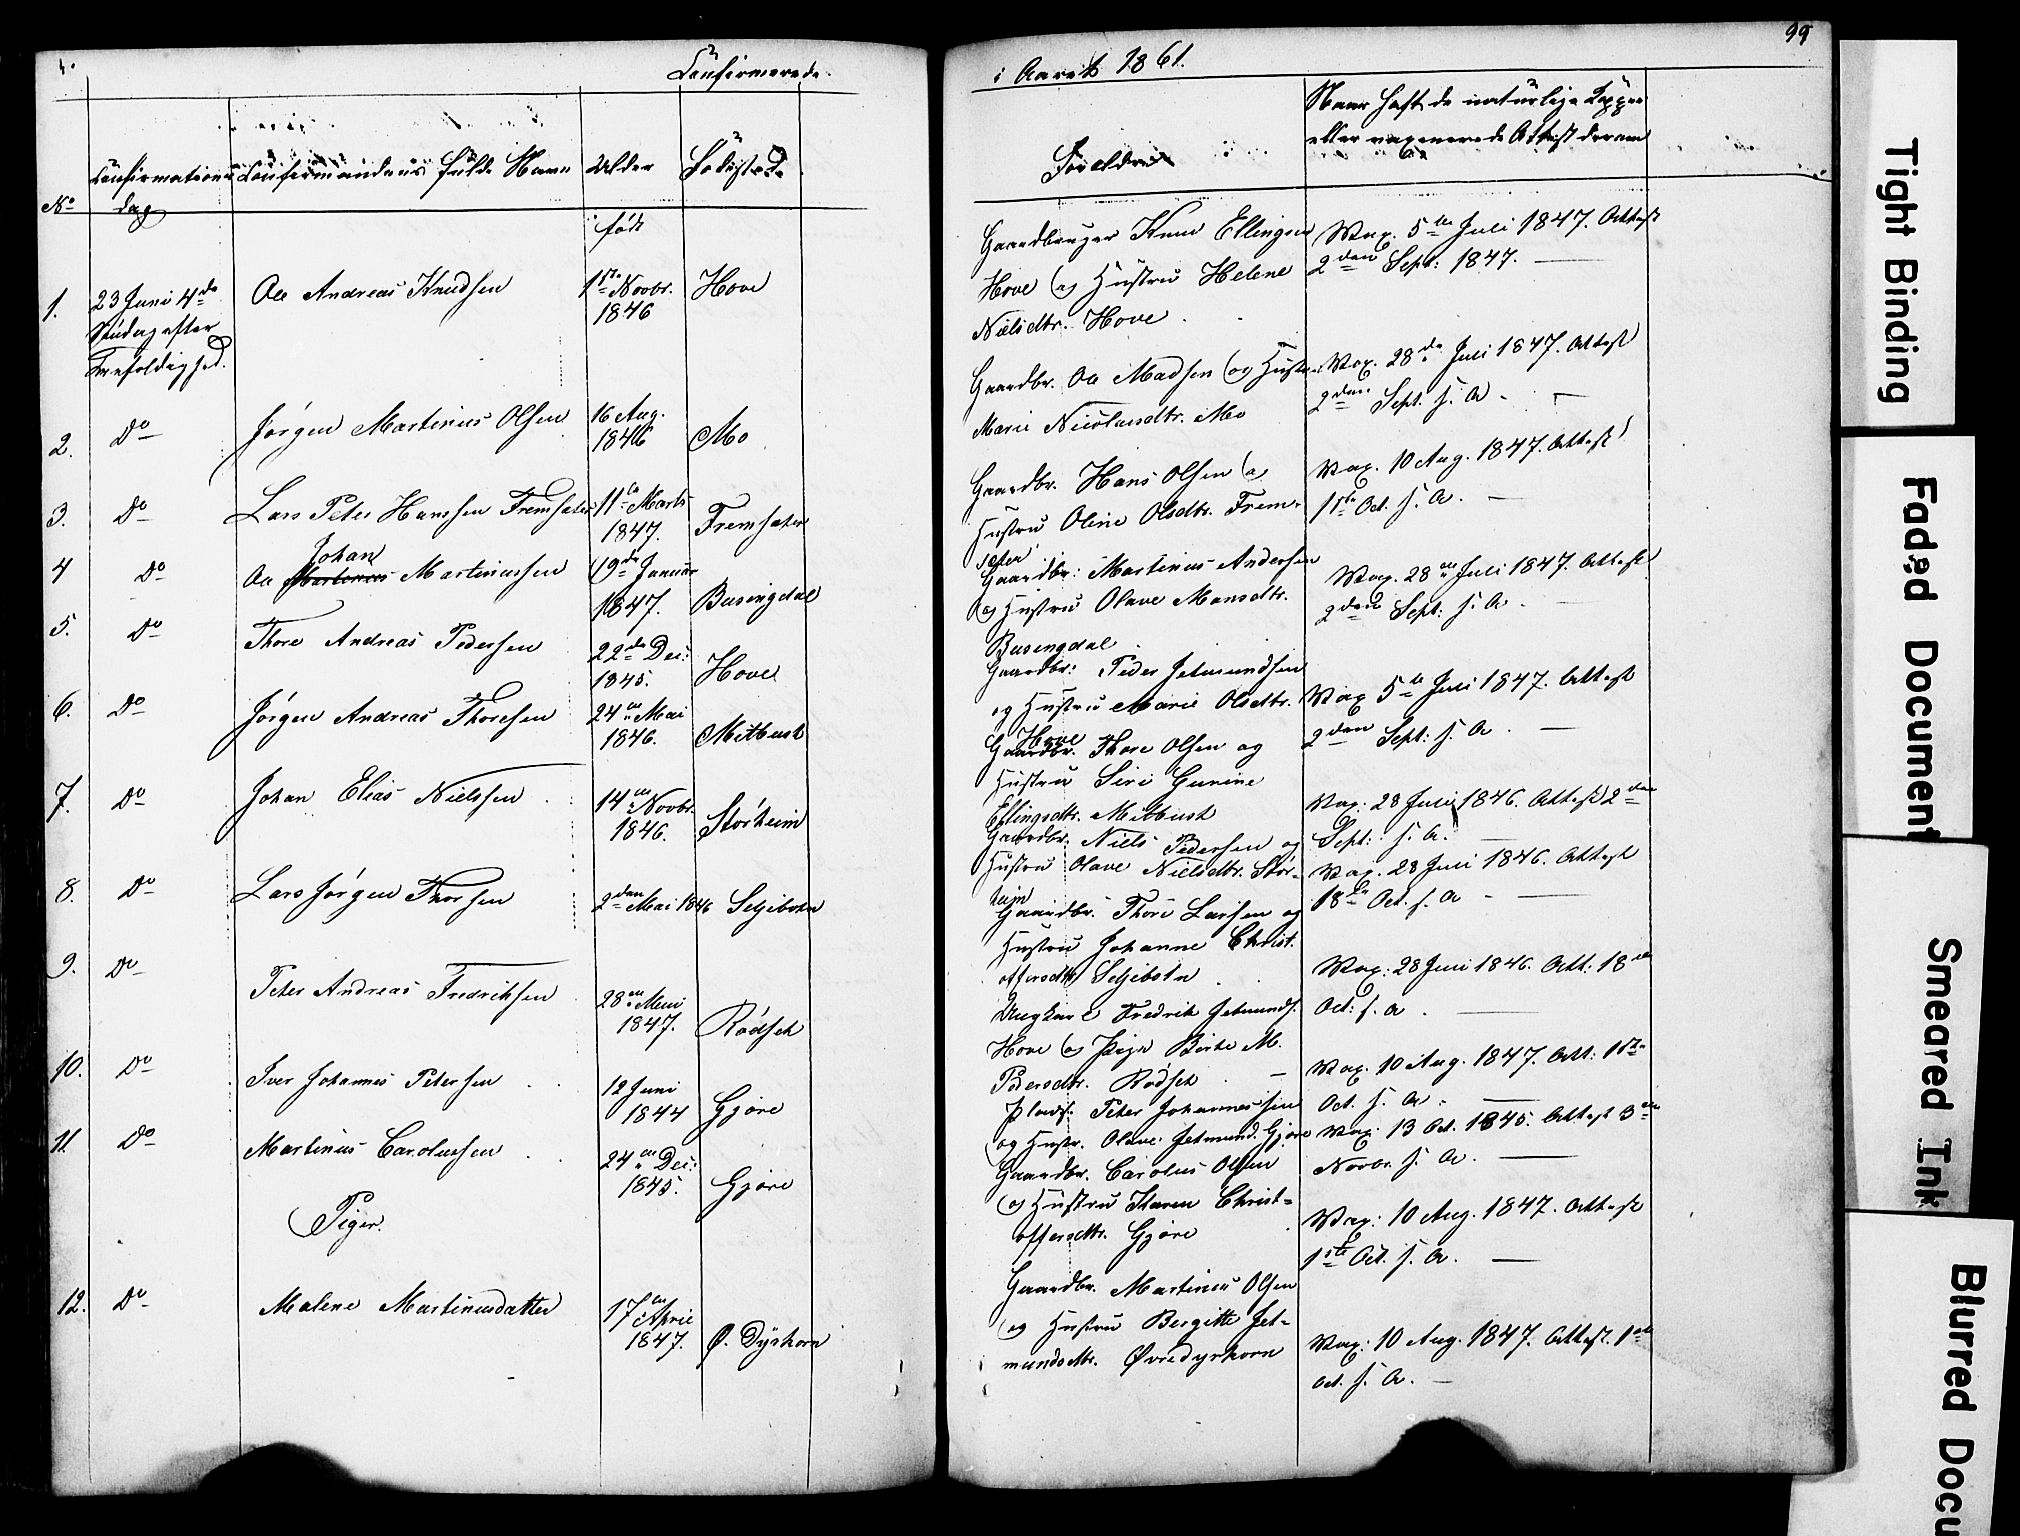 Confirmerede
i Aaret 1861.
99
No
Confirmations dag
Confirmandens fulde Navn
Alder
Fødested
Forældre
Naar havt de naturlige Kopper
eller vaxinerede Attest derom
født
1.
23 Juni 4de
Søndag efter
Trefoldighed.
Ole Andreas Knudsen
1ste Novbr.
1846
Hove
Gaardbruger Knud Ellingsen
Hove og Hustru Helene
Nielsdtr. Hove.
Vax. 5te Juli 1847. Attest
2den Sept: 1847.
2.
Do
Jørgen Martinus Olsen
16 Aug.
1846
Mo
Gaardbr. Ole Madsen og Hustru
Marie Nicolausdtr. Mo
Vax. 28de Juli 1847. Attest
2den Sept. s. A.
3.
Do
Lars Peter Hanssen Fremsæter
11te Marts
1847.
Fremsæter
Gaardbr. Hans Olsen og
Hustru Oline Olsdtr. Frem-
sæter
Vax. 10 Aug. 1847. Attest
1ste Oct. s. A.
4
Do
Johan
Ole Martinus Martinussen
19de Januar
1847.
Busingdal
Gaardbr: Martinus Andersen
og Hustru Olave Mansdtr.
Busengdal
Vax. 28de Juli 1847. Attest
2den Sept: s. A.
5.
Do
Thore Andreas Pedersen
22de Dec:
1845.
Hove
Gaardbr: Peder Jetmundsen
og Hustru Marie Olsdtr.
Hove
Vax 5te Juli 1847. Attest
2den Sept: s. A.
6.
Do
Jørgen Andreas Thoresen
24de Mai
1846.
Mitbust
Gaardbr. Thore Olsen og
Hustru Siri Gurine
Ellingsdtr. Mitbust
Vax: 28 Juli 1846. Attest 2den
Sept: s. A.
7.
Do
Johan Elias Nielssen
14de Novbr.
1846.
Storheim
Gaardbr. Niels Pedersen og
Hustru Olave Nielsdtr. Stor-
heim
Vax. 28 Juni 1846. Attest
18de Oct. s. A
8.
Do
Lars Jørgen Thorsen
2den Mai 1846
Seljebotn
Gaardbr. Thore Larsen og
Hustru Johanne Christ.
offersdtr. Seljebotn
Vax: 28 Juni 1846. Att: 18de
Oct: s. A.
9.
Do
Peter Andreas Fredriksen
1847.
Rødset
Ungkarl Fredrik Jetmunds.
Hove og Pige Birte M.
Pedersdtr. Rødset
Vax. 10 Aug. 1847. Att: 1ste
Oct. s. A.
10.
Do
Iver Johannes Petersen
12 Juni
1844
Gjøre
Plads. Peter Johannessen
og Hustr. Olave Jetmund. Gjøre
Vax: 13 Oct. 1845. Attest 3de
Novbr. s. A.
11
Do
Martinus Carolussen
24de Dec:
1845.
Gjøre
Gaardbr. Carolus Olsen
og Hustru Karen Christ-
offersdtr. Gjøre
Vax: 10 Aug. 1847. Attest
1ste Oct. s. A.
Piger.
12.
Do
Malene Martinusdatter
17de April
1847.
Ø. Dyrkorn
Gaardbr. Martinus Olsen
og Hustru Bergitte Jet-
mundsdtr. Øvredyrkorn
Vax: 10 Aug. 1847. Attest. 1ste
Oct. s. A.
Tight Binding
Faded Document
Smeared Ink
Blurred Docu